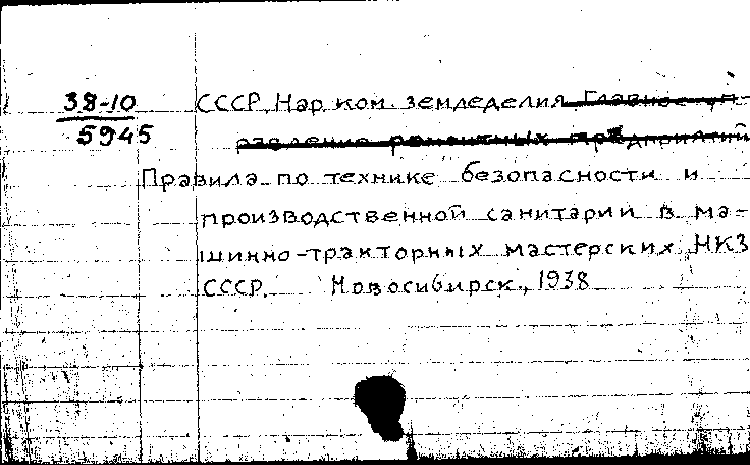 38-10 СССР. Нар. ком. земледелия. Главное уп-
5945 равление ремонтных предприятий
Правила по технике безопасности и
производственной санитарии в ма-
шинно-тракторных мастерских НКЗ
СССР. Новосибирск, 1938